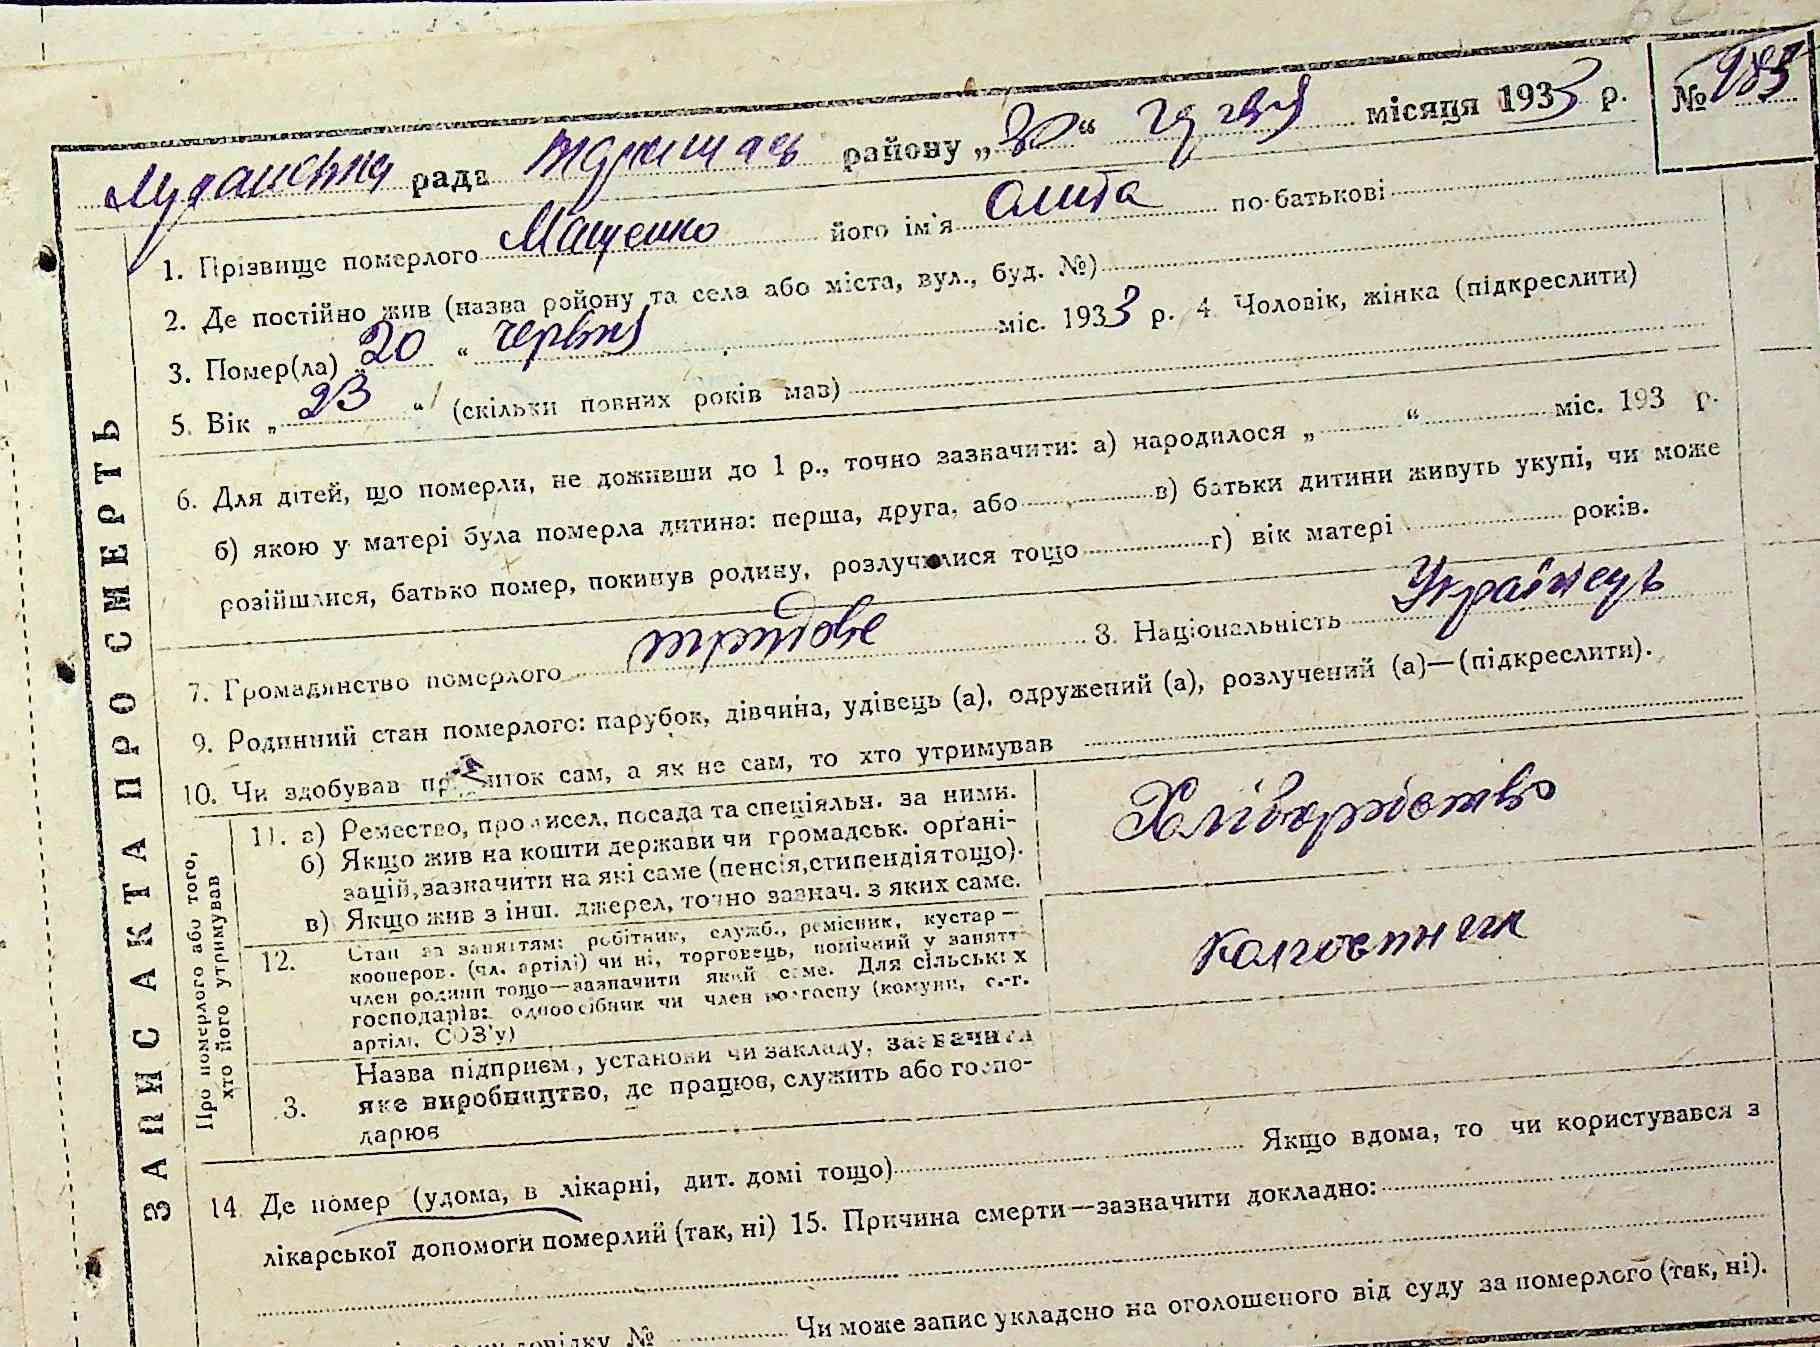 № 983
Лукашська рада района району „30“ грудня місяця 1933 р.
1. Прізвище померлого Мащенко його ім'я Олита по-батькові
2. Де постійно жив (назва ройону та села або міста, вул., буд. №)
3. Помер(ла) „20“ червня міс. 1933 р. 4. Чоловік, жінка (підкреслити)
5. Вік „23“ (скільки повних років мав)
6. Для дітей, що померли, не доживши до 1 р., точно зазначити: а) народилося „ “ міс. 193 р.
б) якою у матері була померла дитина: перша, друга, або в) батьки дитини живуть укупі, чи може
розійшлися, батько помер, покинув родину, розлучилися тощо г) вік матері років.
7. Громадянство померлого 8. Національність Українець
9. Родинний стан померлого: парубок, дівчина, удівець (а), одружений (а), розлучений (а)—(підкреслити).
10. Чи здобував прожиток сам, а як не сам, то хто утримував
ЗАПИС АКТА ПРО СМЕРТЬ
Про померлого або того,
хто його утримував
11. а) Ремество, промисел, посада та спеціяльн. за ними.
б) Якщо жив на кошти держави чи громадськ. орґані-
зацій, зазначити на які саме (пенсія, стипендія тощо).
в) Якщо жив з інш. джерел, точно зазнач. з яких саме.
Хліборобство
12. Стан за заняттям: робітник, служб., ремісник, кустар—
кооперов. (чл. артілі) чи ні, торговець, помічний у занятт
член родини тощо—зазначити який саме. Для сільських
господарів: одноосібник чи член колгоспу (комуни, с.-г.
артілі, СОЗ'у)
колгоспник
3. Назва підприєм., установи чи закладу, зазначити
яке виробництво, де працює, служить або госпо-
дарює
14. Де помер (удома, в лікарні, дит. домі тощо) Якщо вдома, то чи користувався з
лікарської допомоги померлий (так, ні) 15. Причина смерти—зазначити докладно:
довідку № Чи може запис укладено на оголошеного від суду за померлого (так, ні).